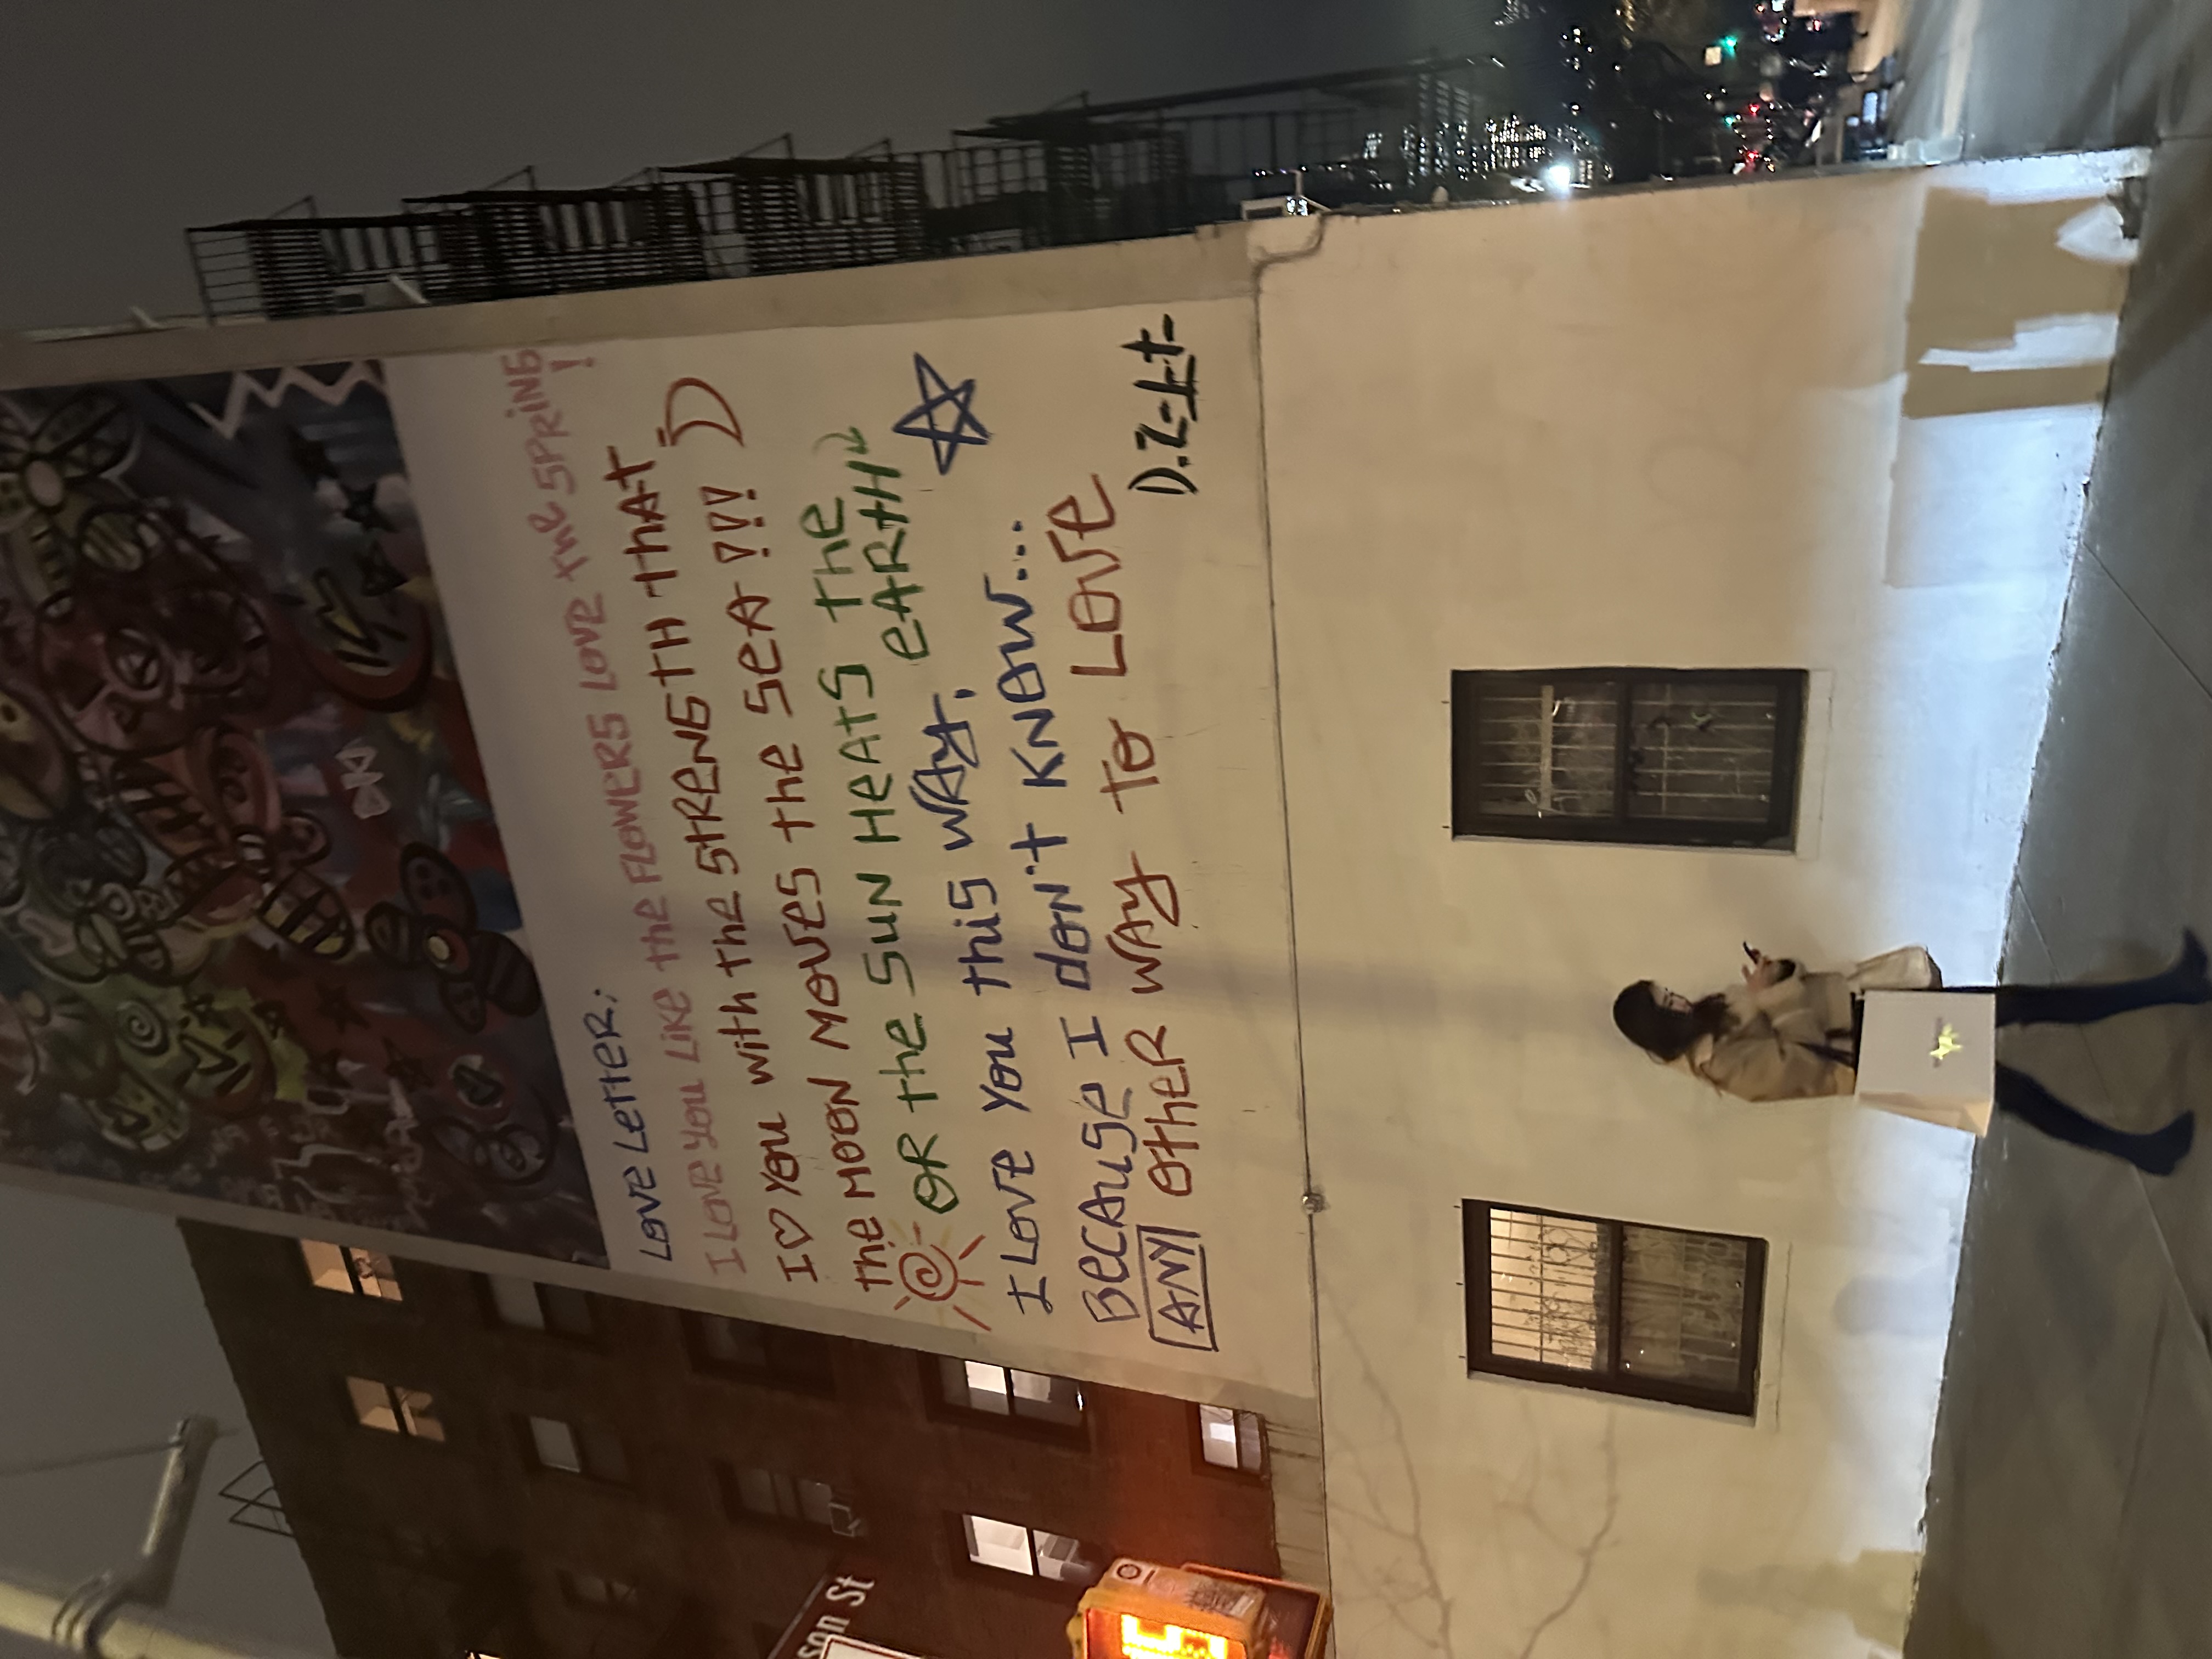 LOVE LETTER;
I LOVE YOU LIKE the FLOWERS LOVE the SPRING!
I ♡ YOU with the STRENGTH THAT
the MOON MOVES the SEA !!!
OR the SUN HEATS the
EARTH
I LOVE YOU this WAY,
BECAUSE I don't KNOW...
ANY OTHER WAY TO LOVE
son St